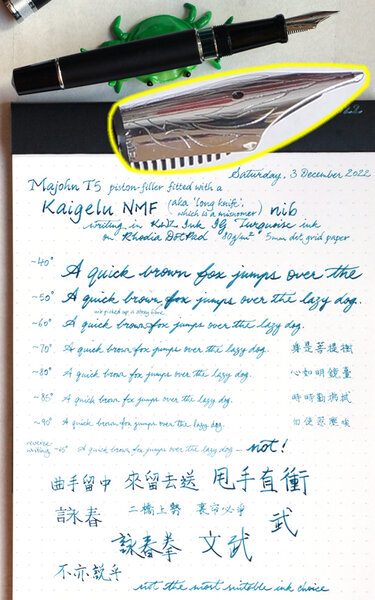 Saturday, 3 December 2022
Majohn T5 piston-filler fitted with a
Kaigelu NMF (aka 'long knife', which is a misnomer) nib
writing in K&W Ink IG Turquoise ink
on Rhodia DotPad 80g/m² 5mm dot grid paper
~40° A quick brown fox jumps over the
~50° A quick brown fox jumps over the lazy dog.
~60° A quick brown fox jumps over the lazy dog.
~70° A quick brown fox jumps over the lazy dog. 身是菩提樹
~80° A quick brown fox jumps over the lazy dog. 心如明鏡臺
~85° A quick brown fox jumps over the lazy dog. 時時勤拂拭
~90° A quick brown fox jumps over the lazy dog.
reverse writing ~45° A quick brown fox jumps over the lazy dog — not!
曲手留中 來留去送 甩手直衝
詠春 二橋上勢 武
詠春拳 文武
不亦說乎
not the most suitable ink choice